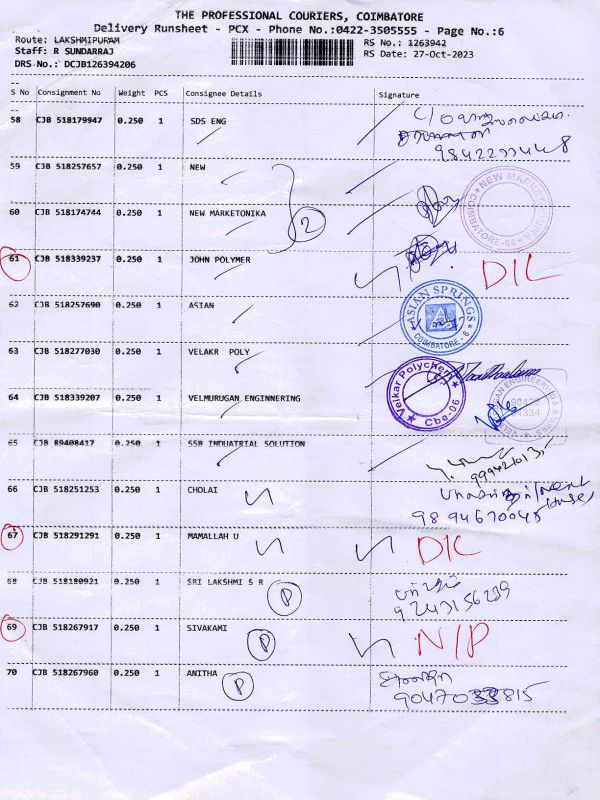 THE PROFESSIONAL COURIERS, COIMBATORE
Delivery Runsheet - PCX - Phone No.:0422-3505555 - Page No.:6
Route: LAKSHMIPURAM
RS No.: 1263942
Staff: R SUNDARRAJ
RS Date: 27-Oct-2023
DRS No.: DCJB126394206
S No Consignment No Weight PCS Consignee Details Signature
58 CJB 518179947 0.250 1 SDS ENG
59 CJB 518257657 0.250 1 NEW
60 CJB 518174744 0.250 1 NEW MARKETONIKA
2
61 CJB 518339237 0.250 1 JOHN POLYMER D/L
62 CJB 518257690 0.250 1 ASIAN
ASIAN SPRINGS
COIMBATORE - 6
63 CJB 518277030 0.250 1 VELAKR POLY
Cbe-06
64 CJB 518339207 0.250 1 VELMURUGAN ENGINNERING
65 CJB 89408417 0.250 1 SSB INDUATRIAL SOLUTION
66 CJB 518251253 0.250 1 CHOLAI
9894670045
67 CJB 518291291 0.250 1 MAMALLAH U D/L
68 CJB 518180921 0.250 1 SRI LAKSHMI S R P
9243156239
69 CJB 518267917 0.250 1 SIVAKAMI P N/P
70 CJB 518267960 0.250 1 ANITHA P